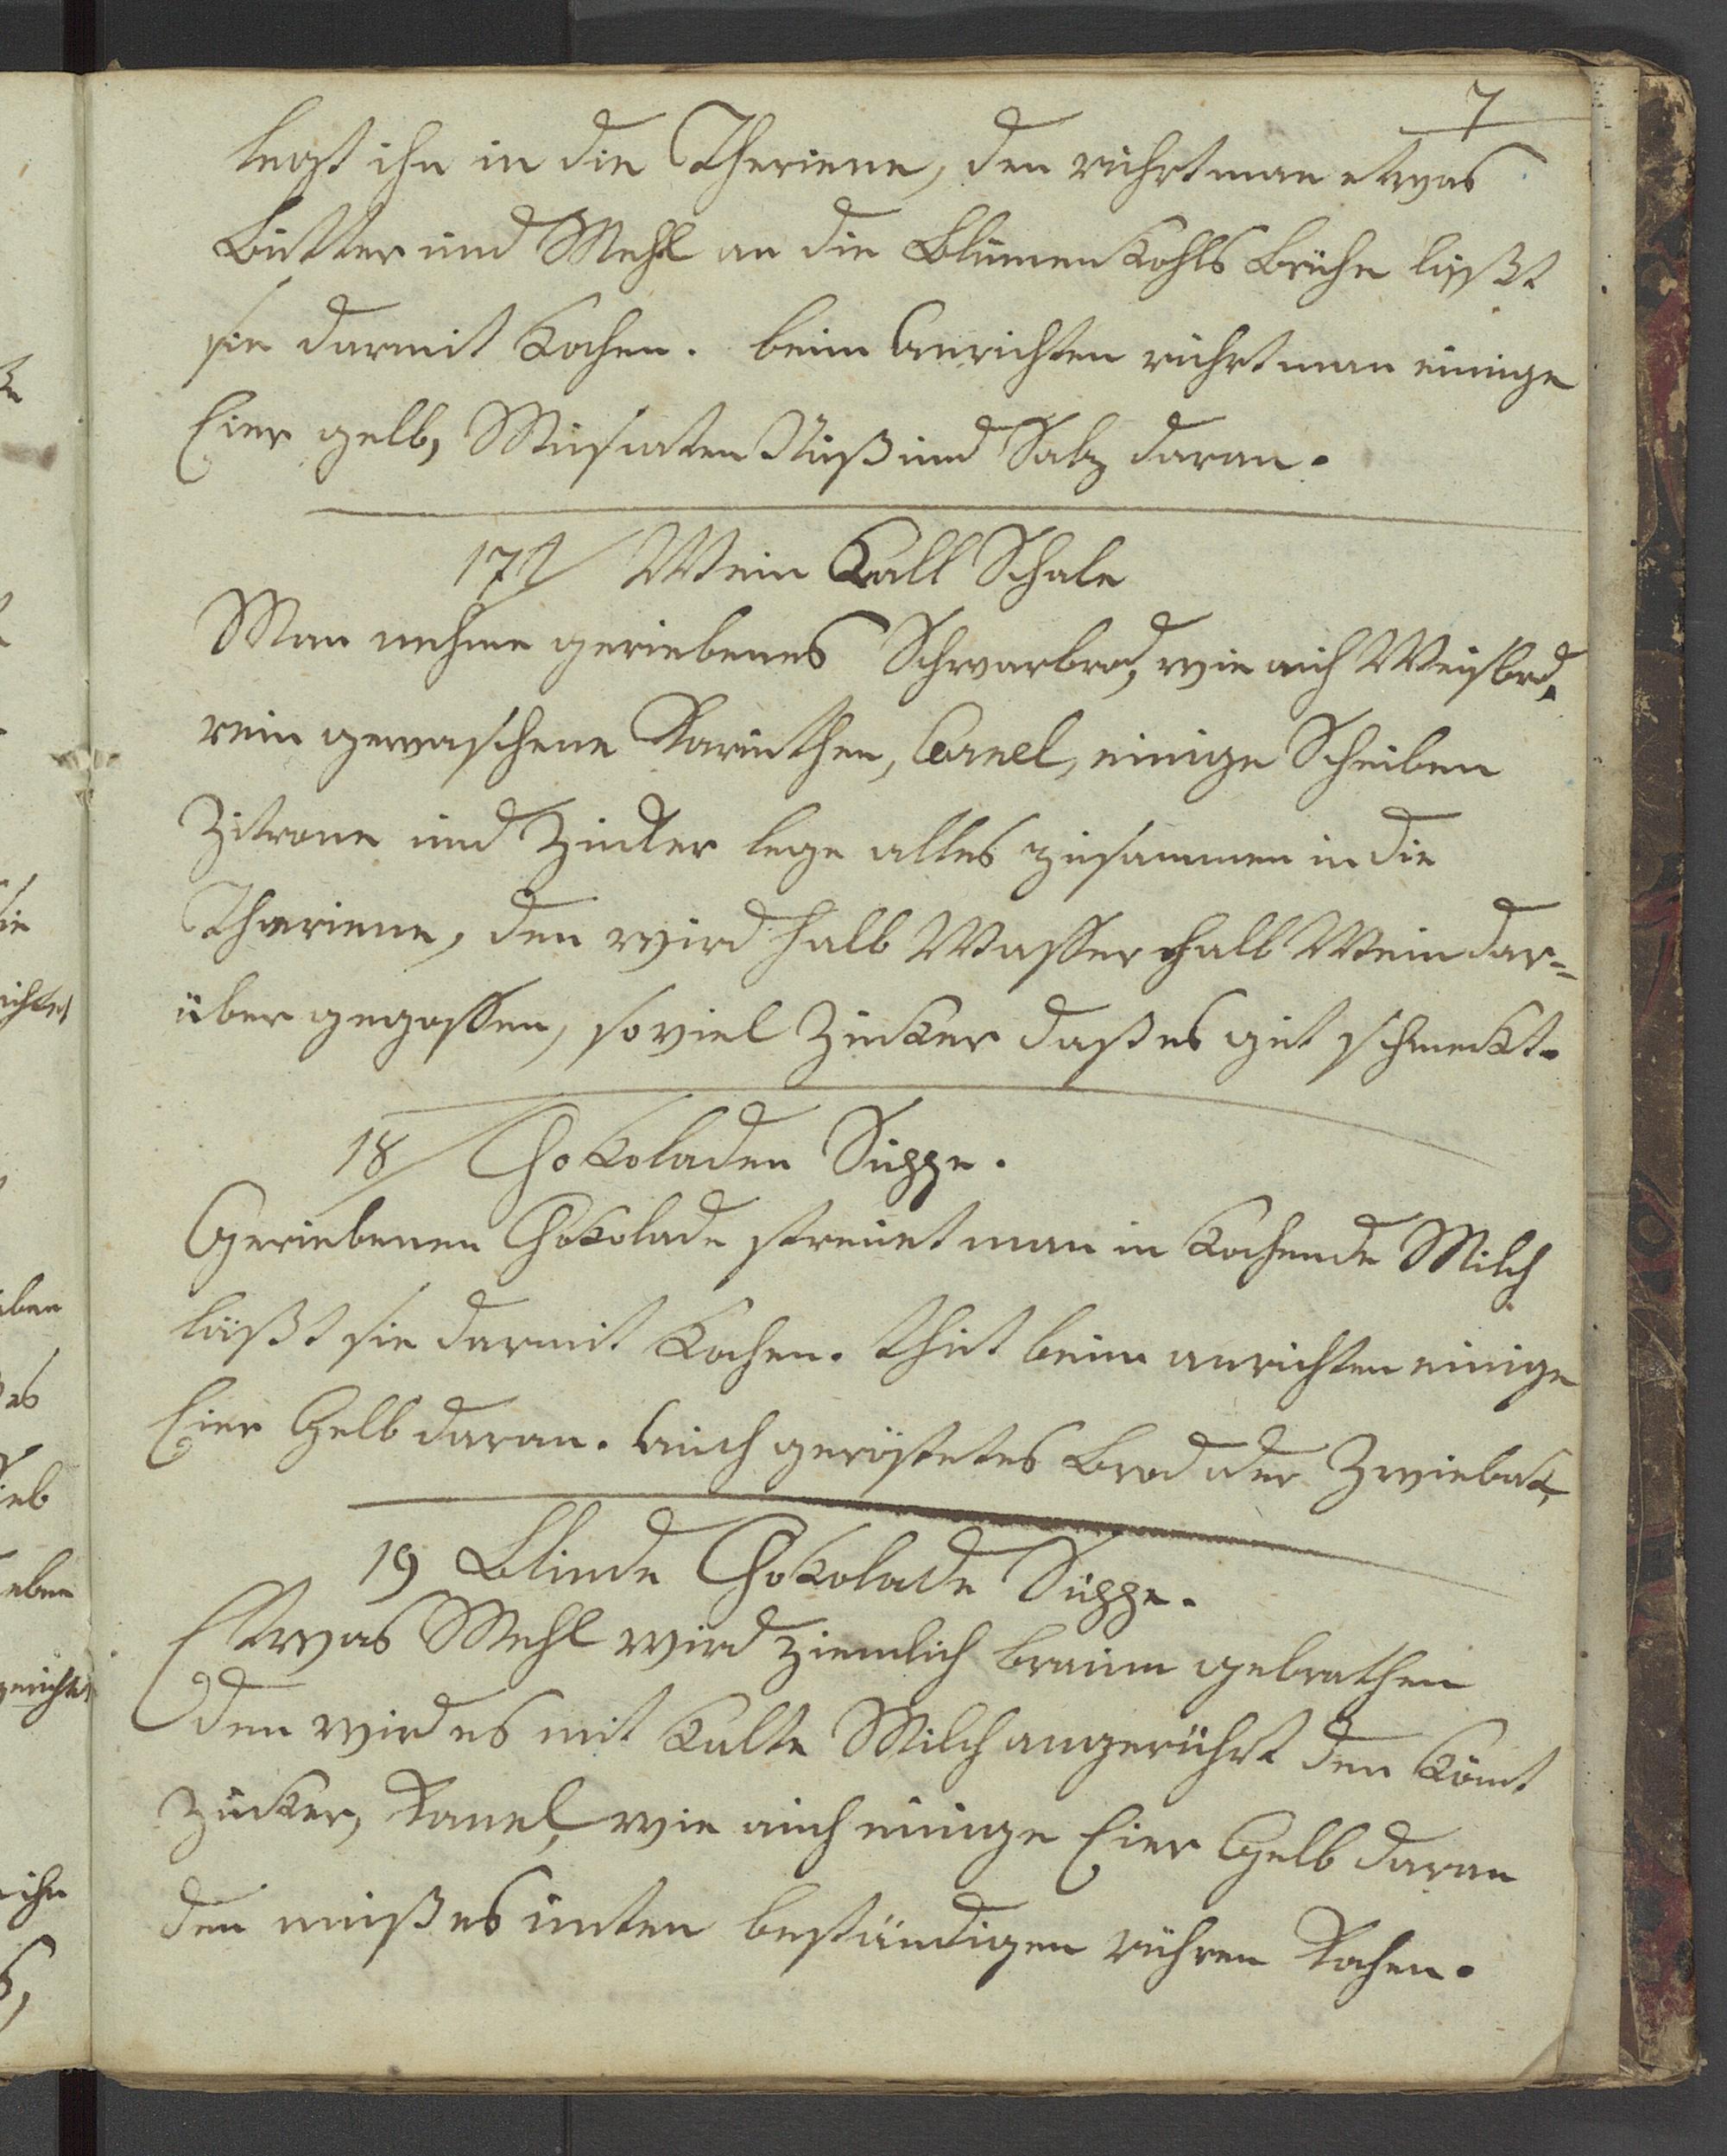 7
legt ihn in die Theriene, den rührt man etwas
Butter und Mehl an die Blumen Kohls Brühe läßt
sie darmit Kochen. beim Anrichten rührt man einige
Eier gelb, Muscaten Nuß und Salz daran.
17 Wein Kall Schale
Man nehme geriebenes Schwarbrod, wie auch Weisbrod,
rein gewaschene Karinthen, Canel, einige Scheiben
Zitrone und Zucker lege alles zusammen in die
Theriene, den wird halb Wasser halb Wein dar=
über gegossen, so viel Zucker daß es gut schmeckt.
18 Chokoladen Suppe.
Geriebenen Chokolade streuet man in Kochende Milch
läßt sie darmit Kochen. thut beim anrichten einige
Eier Gelb daran. auch geröstetes Brod oder Zwiebak,
19 Blinde Chokolade Suppe.
Etwas Mehl wird ziemlich braun gebrathen
den wird es mit Kalte Milch angerührt den Kömt
Zucker, Kanel, wie auch einige Eier Gelb daran
den muß es unten beständigen rühren Kochen.